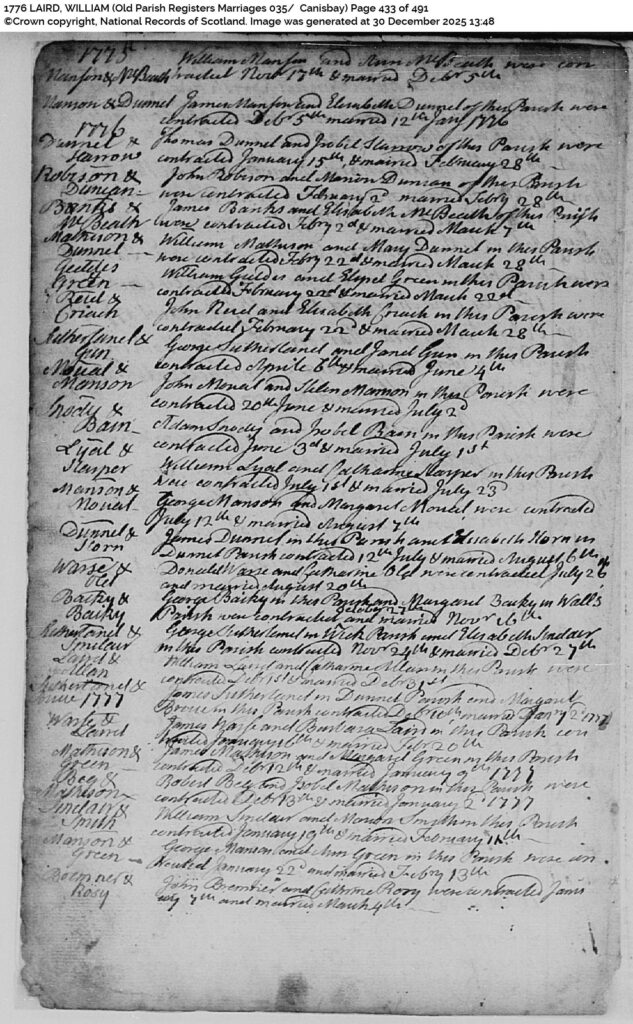 1776 LAIRD, WILLIAM (Old Parish Registers Marriages 035/ Canisbay) Page 433 of 491
©Crown copyright, National Records of Scotland. Image was generated at 30 December 2025 13:48
1775 William Manson and Ann McBeath were con
Manson & McBeath tracted Novr 17th & married Debr 5th
Manson & Dunnel James Manson and Elisabeth Dunnel of this Parish were
contracted Debr 5th married 12th Jany 1776
1776
Dunnel & Thomas Dunnel and Isobel Harrow of this Parish were
Harrow contracted January 15th, & married February 28th
Robison & John Robison and Marion Duncan of this Parish
Duncan were contracted February 2d married Febry 28th
Banks & James Banks and Elisabeth McBeath of this Parish
McBeath were contracted Febry 2d & married March 7th
Mathison & William Mathison and Mary Dunnel in this Parish
Dunnel were contracted Febry 22d & married March 28th
Geddes William Geddes and Elspet Green in this Parish were
Green contracted February 22d & married March 22d
Reid & John Reid and Elisabeth Criach in this Parish were
Criach contracted February 22d & married March 28th
Sutherland & George Sutherland and Janet Gun in this Parish
Gun contracted Aprile 6th & married June 4th
Moual & John Moual and Helen Manson in this Parish were
Manson contracted 20th June & married July 2d
Snody & Adam Snody and Isobel Bain in this Parish were
Bain contracted June 3d & married July 1st
Lyal & William Lyal and Catharine Harper in this Parish
Harper were contracted July 1st & married July 23d
Manson & George Manson and Margaret Moual were contracted
Moual July 12th & married August 7th
Dunnel & James Dunnel in this Parish and Elisabeth Horn in
Horn Dunnel Parish contracted 12th July & married August 6th
Warse & Donald Warse and Catharine Old were contracted July 26
Old and married August 20th
Backy & George Backy in this Parish and Margaret Backy in Wall's
Backy Parish were contracted October 27th and married Novr 16th
Sutherland & George Sutherland in Wick Parish and Elisabeth Sinclair
Sinclair in this Parish contracted Novr 24th & married Debr 27th
Laird & William Laird and Catharine Allan in this Parish were
Allan contracted Debr 1st & married Debr 31st
Sutherland & James Sutherland in Dunnel Parish and Margaret
1777 in this Parish contracted Debr married Jany 2d 1777
Warse & James Warse and Barbara Laird in this Parish con
Laird tracted January 16th & married Febr 20th
Mathison & James Mathison and Margaret Green in this Parish
Green contracted Debr 12th & married January 9th 1777
Beg & Robert Beg and Isobel Mathison in this Parish were
Mathison contracted Debr 13th & married January 2d 1777
Sinclair & William Sinclair and Smith in this Parish
Smith contracted January 19th & married February
Manson & George Manson and Ann Green in this Parish were con
Green tracted January 22d and married Febry 13th
Bremner & John Bremner and Cathrine Rosy were contracted Janu
Rosy ary 7th and married March 4th